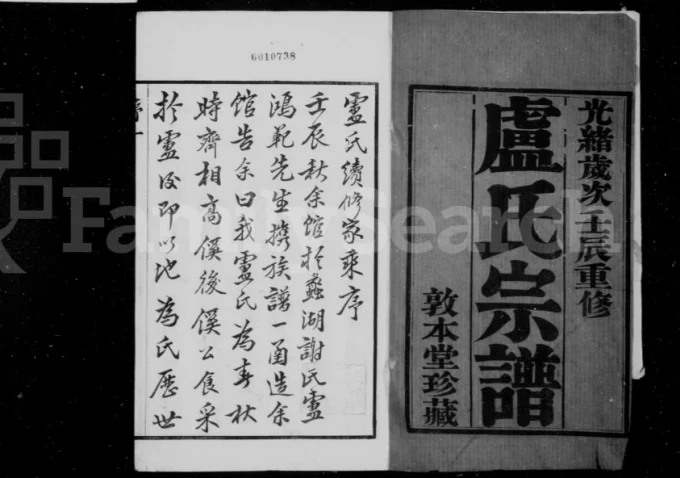 光緒歲次壬辰重修
盧氏宗譜
敦本堂珍藏
6010738
盧氏續修家乘序
壬辰秋余館於蠡湖謝氏盧
鴻範先生携族譜一函造余
館告余曰我盧氏為春秋
時齊相高傒後傒公食采
於盧後即以地為氏歷世
序一
FamilySearch